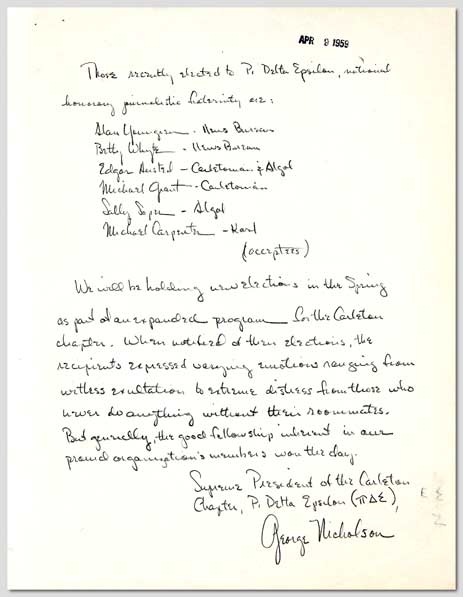 APR 9 1959
Those recently elected to Pi Delta Epsilon, national
honorary journalistic fraternity are:
Alan Youngren - News Bureau
Betty Whyte - News Bureau
Edgar - Carletonian & Algol
Michael Grant - Carletonian
Sally - Algol
Michael Carpenter -
(accepters)
We will be holding new elections in the Spring
as part of an expanded program for the Carleton
chapter. When notified of their elections, the
recipients expressed varying emotions ranging from
witless exultation to extreme distress from those who
never do anything without their roommates.
But generally, the good fellowship inherent in our
proud organization's members won the day.
Supreme President of the Carleton
Chapter, Pi Delta Epsilon (ΠΔΕ),
George Nicholson